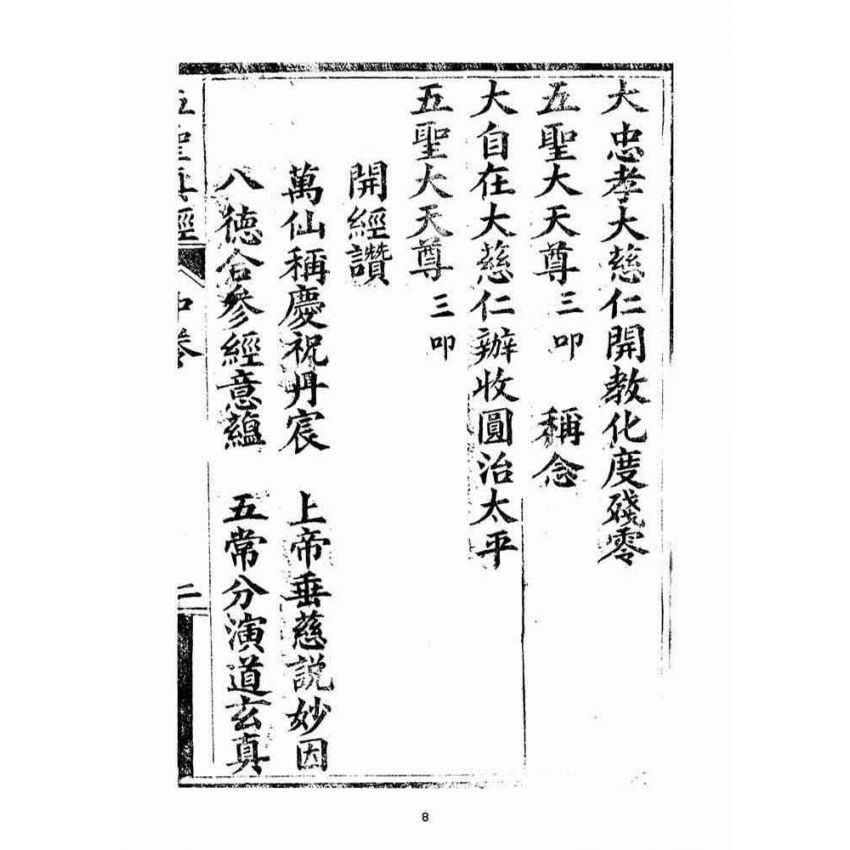 大忠孝大慈仁開教化度殘零
五聖大天尊 三叩 稱念
大自在大慈仁辦收圓治太平
五聖大天尊 三叩
開經讚
萬仙稱慶祝丹宸 上帝垂慈説妙因
八德合參經意蘊 五常分演道玄真
五聖真經 中卷 二
8